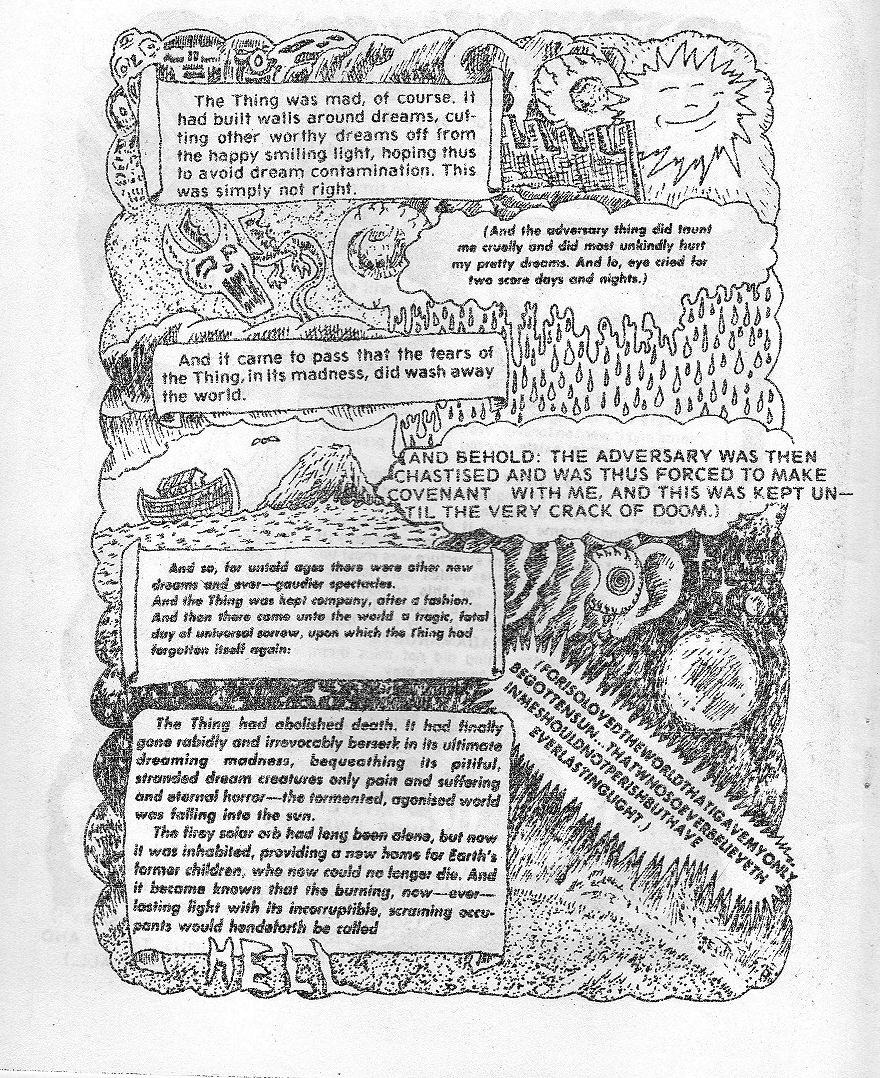 The Thing was mad, of course. It
had built walls around dreams, cut-
ting other worthy dreams off from
the happy smiling light, hoping thus
to avoid dream contamination. This
was simply not right.
(And the adversary thing did taunt
me cruelly and did most unkindly hurt
my pretty dreams. And lo, eye cried for
two score days and nights.)
And it came to pass that the tears of
the Thing, in its madness, did wash away
the world.
(AND BEHOLD: THE ADVERSARY WAS THEN
CHASTISED AND WAS THUS FORCED TO MAKE
COVENANT WITH ME, AND THIS WAS KEPT UN—
TIL THE VERY CRACK OF DOOM.)
And so, for untold ages there were other new
dreams and ever—gaudier spectacles.
And the Thing was kept company, after a fashion.
And then there came unto the world a tragic, fatal
day of universal sorrow, upon which the Thing had
forgotten itself again:
(FORISOLOVEDTHEWORLDTHATIGAVEMYONLY
BEGOTTENSUN...THATWHOSOEVERBELIEVETH
INMESHOULDNOTPERISHBUTHAVE
EVERLASTINGLIGHT.)
The Thing had abolished death. It had finally
gone rabidly and irrevocably berserk in its ultimate
dreaming madness, bequeathing its pitiful,
stranded dream creatures only pain and suffering
and eternal horror—the tormented, agonised world
was falling into the sun.
The firey solar orb had long been alone, but now
it was inhabited, providing a new home for Earth's
former children, who now could no longer die. And
it became known that the burning, now—ever—
lasting light with its incorruptible, screaming occu-
pants would hendeforth be called
HELL